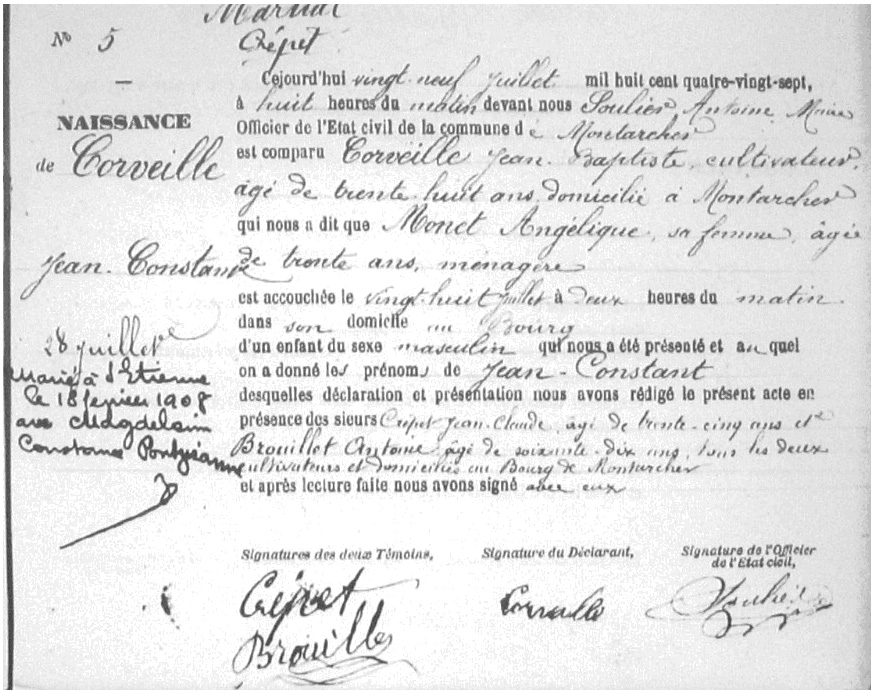 Martial
Crépet
N° 5
NAISSANCE
de Corveille
Jean-Constant
28 Juillet
Marié à St Etienne
le 18 février 1908
avec Magdeleine
Constance
Cejourd'hui vingt-neuf Juillet mil huit cent quatre-vingt-sept,
à huit heures du matin devant nous Soulier Antoine, Maire
Officier de l'Etat civil de la commune de Montarcher
est comparu Corveille Jean-Baptiste, cultivateur,
âgé de trente-huit ans, domicilié à Montarcher
qui nous a dit que Monet Angélique, sa femme, âgée
de trente ans, ménagère
est accouchée le vingt-huit Juillet à deux heures du matin.
dans son domicile au Bourg
d'un enfant du sexe masculin qui nous a été présenté et auquel
on a donné les prénoms de Jean-Constant
desquelles déclaration et présentation nous avons rédigé le présent acte en
présence des sieurs Crépet Jean-Claude, âgé de trente-cinq ans et de
Brouillet Antoine âgé de soixante-dix ans, tous les deux
cultivateurs et domiciliés au Bourg de Montarcher
et après lecture faite nous avons signé avec eux
Signatures des deux Témoins,
Signature du Déclarant,
Signature de l'Officier
de l'Etat civil,
Crépet
Corveille
Soulier
Brouillet